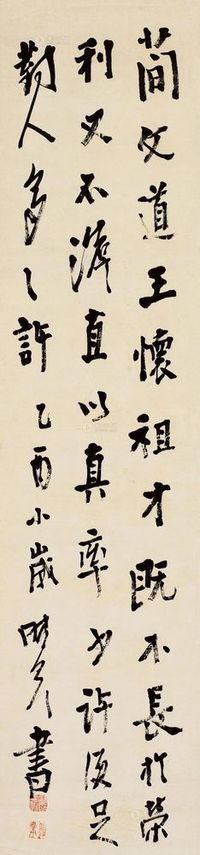 簡文道王懷祖才既不長於榮
利又不直以真率少許便足
對人多々許乙酉小歲書